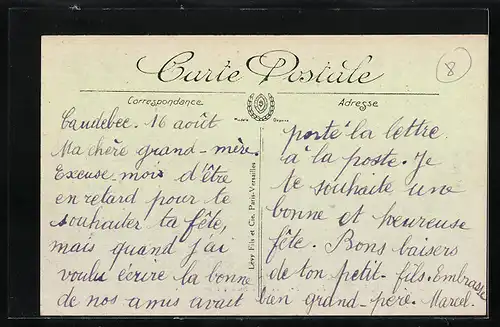 Carte Postale
Correspondance
Adresse
8
Caudebec. 16 août
Ma chère grand-mère.
Excuse mois d'être
en retard pour te
souhaiter ta fête,
mais quand j'ai
voulu écrire la bonne
de nos amis avait
porté la lettre
à la poste. Je
te souhaite une
bonne et heureuse
fête. Bons baisers
de ton petit-fils. Embrasse
bien grand-père. Marcel.
Lévy Fils et Cie, Paris-Versailles